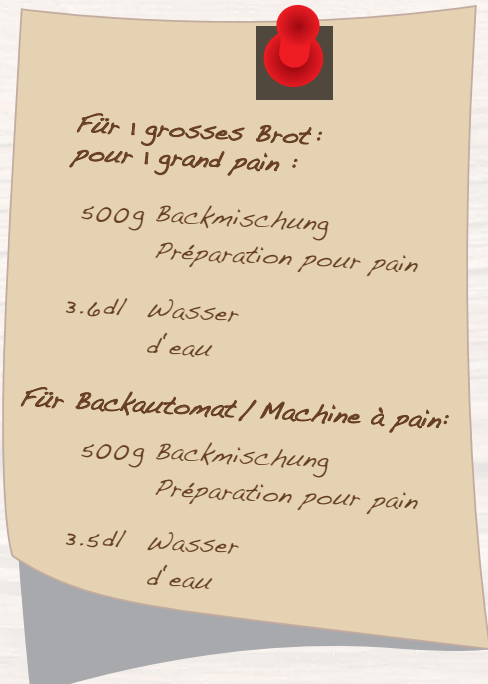 Für 1 grosses Brot:
pour 1 grand pain :
500g Backmischung
Préparation pour pain
3.6dl Wasser
d'eau
Für Backautomat/Machine à pain:
500g Backmischung
Préparation pour pain
3.5dl Wasser
d'eau